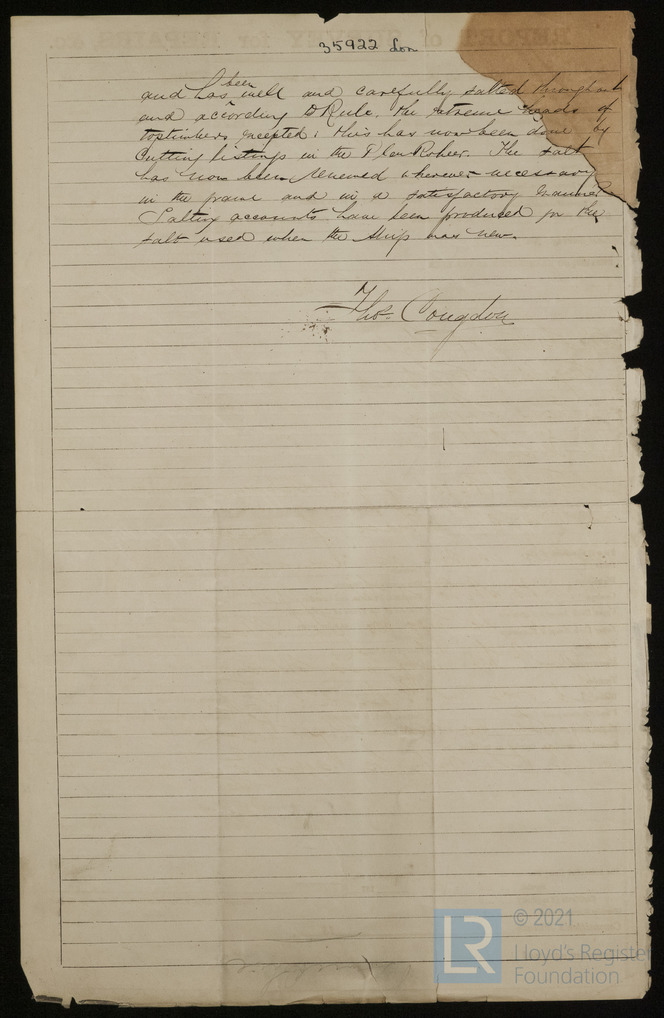 35922 Lon
been
and has well and carefully salted throughout
and according to Rule. the extreme heads of
toptimbers excepted; this has now been done by
Cutting listings in the
The salt
has now been renewed wherever necessary
in the frame and in a satisfactory manner
Salting accounts have been produced for the
salt used when the Ship was new.
Thos. Congdon
LR
© 2021
Lloyd's Register
Foundation